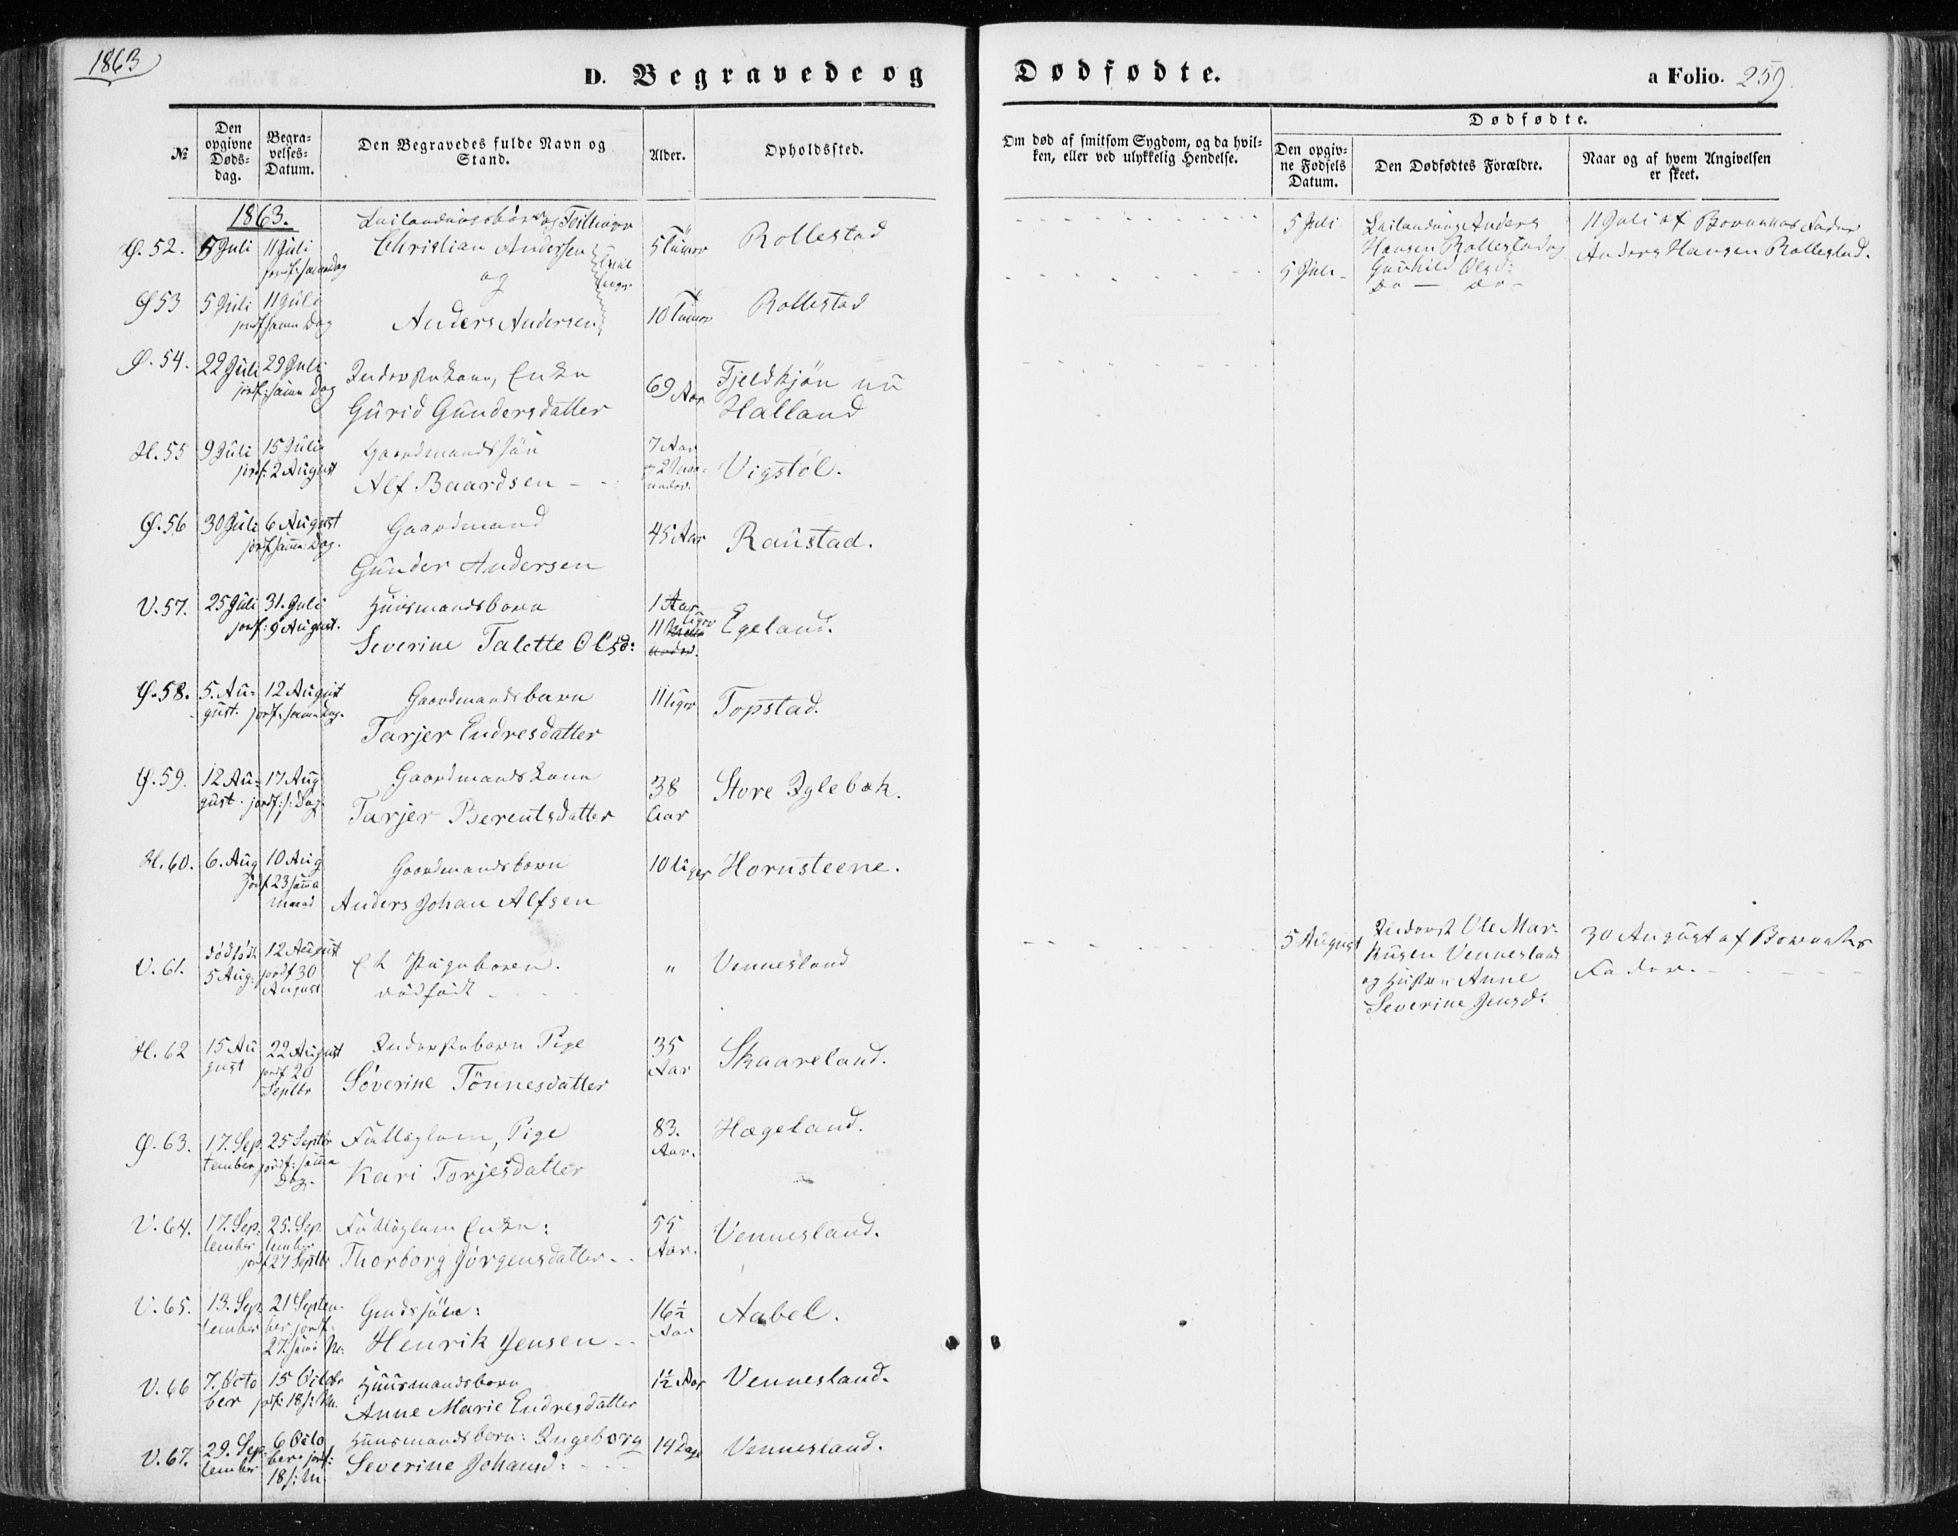 1863
D. Begravede og Dødfødte.
a Folio. 259.
№
Den opgivne Døds-dag.
Begra-velses-Datum.
Den Begravedes fulde Navn og Stand.
Alder.
Opholdssted.
Om død af smitsom Sygdom, og da hvil-ken, eller ved ulykkelig Hendelse.
Dødfødte.
Den opgiv-ne Fødsels Datum.
Den Dødfødtes Forældre.
Naar og af hvem Angivelsen er skeet.
1863.
Ø. 52. 5 Juli 11 Juli
Christian Andersen 5 Timer Rollestad
og
5 Juli Anders Hansen Rollestad og Gunhild Olsd: 11 Juli af Barnets Fader Anders Hansen Rollestad.
Ø 53 5 Juli 11 Juli jordf samme Dag
Anders Andersen 10 Timer Rollestad
5 Juli - Do — Do -
Ø. 54. 22 Juli 29 Juli jordf: samme Dag
Enke
Gurid Gundersdatter 69 Aar Fjeldkjön nu Halland
H. 55 9 Juli 15 Juli jordf: 2 August
Gaardmandssön
Alf Baardsen - 7 Aar Vigstöl.
Ø. 56 30 Juli 6 August jordf samme Dag.
Gaardmand
Gunder Andersen 45 Aar Raustad.
V. 57. 25 Juli 31. Juli jordf: 9 August.
Huusmandsbarn
Severine Talette Olsd: 1 Aar 11 Uger Egeland.
Ø. 58. 5. August. 12 August jordf: samme Dag.
Gaardmandsbarn
Tarjer Endresdatter 11 Uger Topstad.
Ø. 59. 12 August. 17 Aug jordf: s: Dag.
Gaardmandskone
Tarjer Berentsdatter 38 Aar Store Iglebæk.
H. 60. 6. Aug 10 Aug jordf 23 samme Maaned
Gaardmandsbarn
Anders Johan Alfsen 10 Uger Hornsteene.
V. 61. dödfödt 5 Aug: 12 August jordf 30 August
Et Pigebarn.
dödfödt " Vennesland
5 August Inderst Ole Markusen Vennesland og Hustru Anne Severine Jensd: 30 August af Barnets Fader.
H. 62 15 August 22 August jordf 20 Septbr
Pige
Söverine Tönnesdatter 35 Aar Skaareland.
Ø. 63. 17. September 25 Septbr jordf: samme Dag.
Fattiglem, Pige
Kari Torjesdatter 83. Aar. Hægeland.
V. 64. 17. September 25. September jordf 27 Septbr
Fattiglem Enke:
Thorborg Jörgensdatter - 55 Aar. Vennesland.
V. 65. 13. September 21 September jordf: 27. samme M:
Henrik Jensen - 16½ Aar Aabel.
V. 66 7. October 15 Octobr jordf: 18 s: M.
Huusmandsbarn
Anne Marie Endresdatter 1½ Aar Vennesland.
V. 67. 29. September 6 October jordf: 18 s: M
Huusmandsbarn: Ingeborg
Severine Johansd: 14 Dage Vennesland.